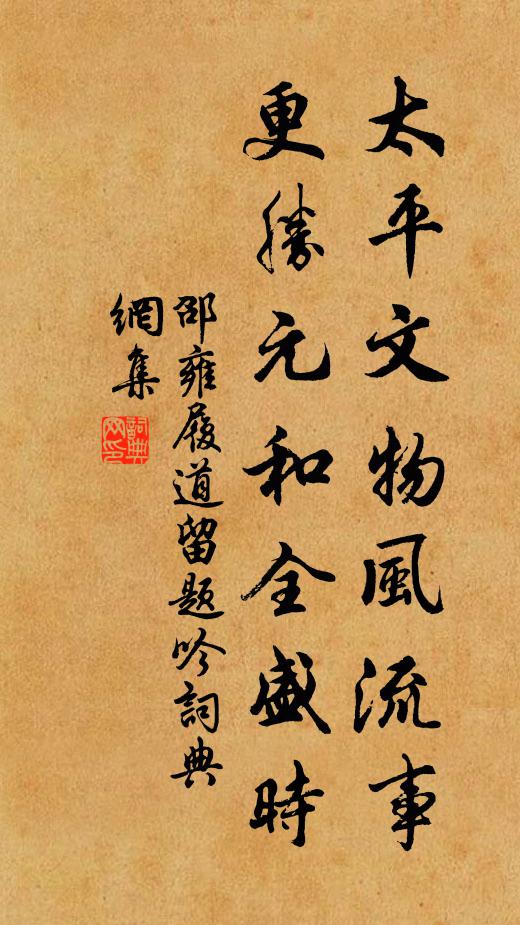 太平文物風流事
更勝元和全盛時
邵雍履道留題吟詞典
網集
詞典网印